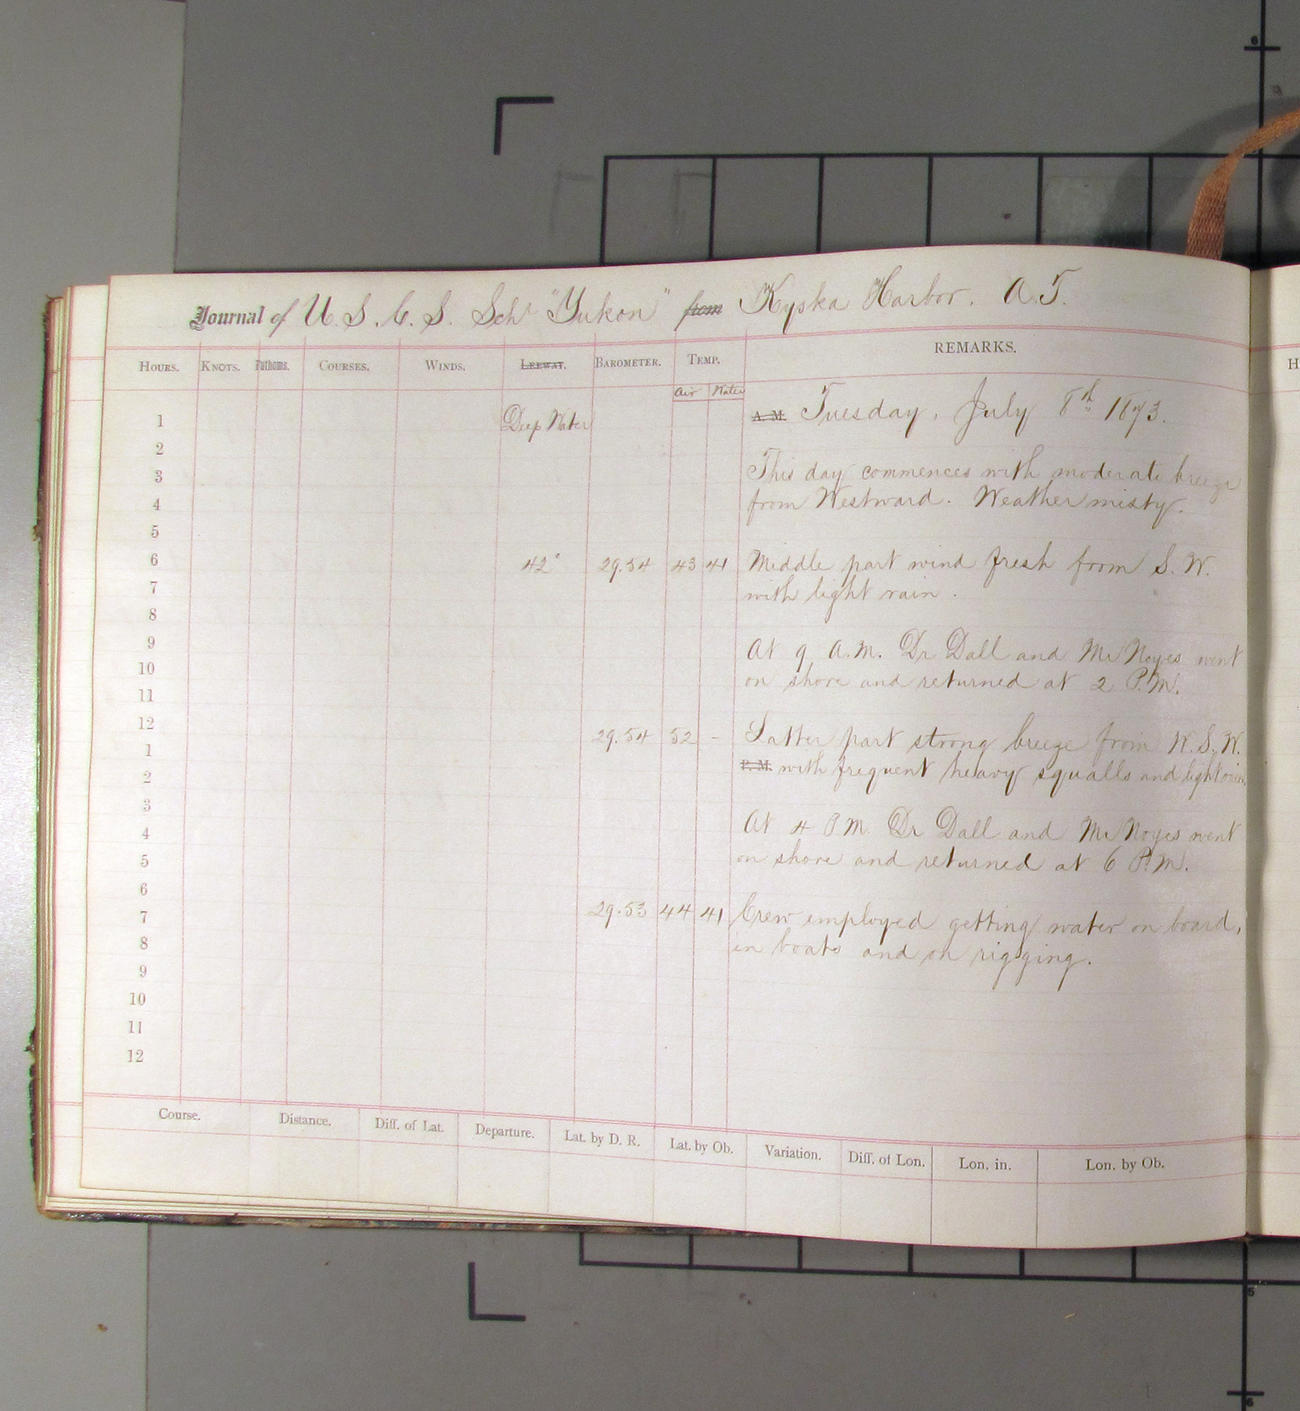 Journal of U. S. C. S. Schr "Yukon" from Kyska Harbor. A.T.
HOURS. KNOTS. Fathoms. COURSES. WINDS. LEEWAY. BAROMETER. TEMP. REMARKS.
Air Water
1 Deep Water A. M. Tuesday, July 8th 1873.
2
3 This day commences with moderate breeze
4 from Westward. Weather misty.
5
6 42° 29.54 43 41 Middle part wind fresh from S. W.
7 with light rain.
8
9 At 9 A.M. Dr Dall and Mr Noyes went
10 on shore and returned at 2 P.M.
11
12 29.54 52 - Latter part strong breeze from W. S. W.
1 P. M. with frequent heavy squalls and light rain.
2
3
4 At 4 P.M. Dr Dall and Mr Noyes went
5 on shore and returned at 6 P.M.
6
7 29.53 44 41 Crew employed getting water on board,
8 in boats and on rigging.
9
10
11
12
Course. Distance. Diff. of Lat. Departure. Lat. by D. R. Lat. by Ob. Variation. Diff. of Lon. Lon. in. Lon. by Ob.
H
6
5
6